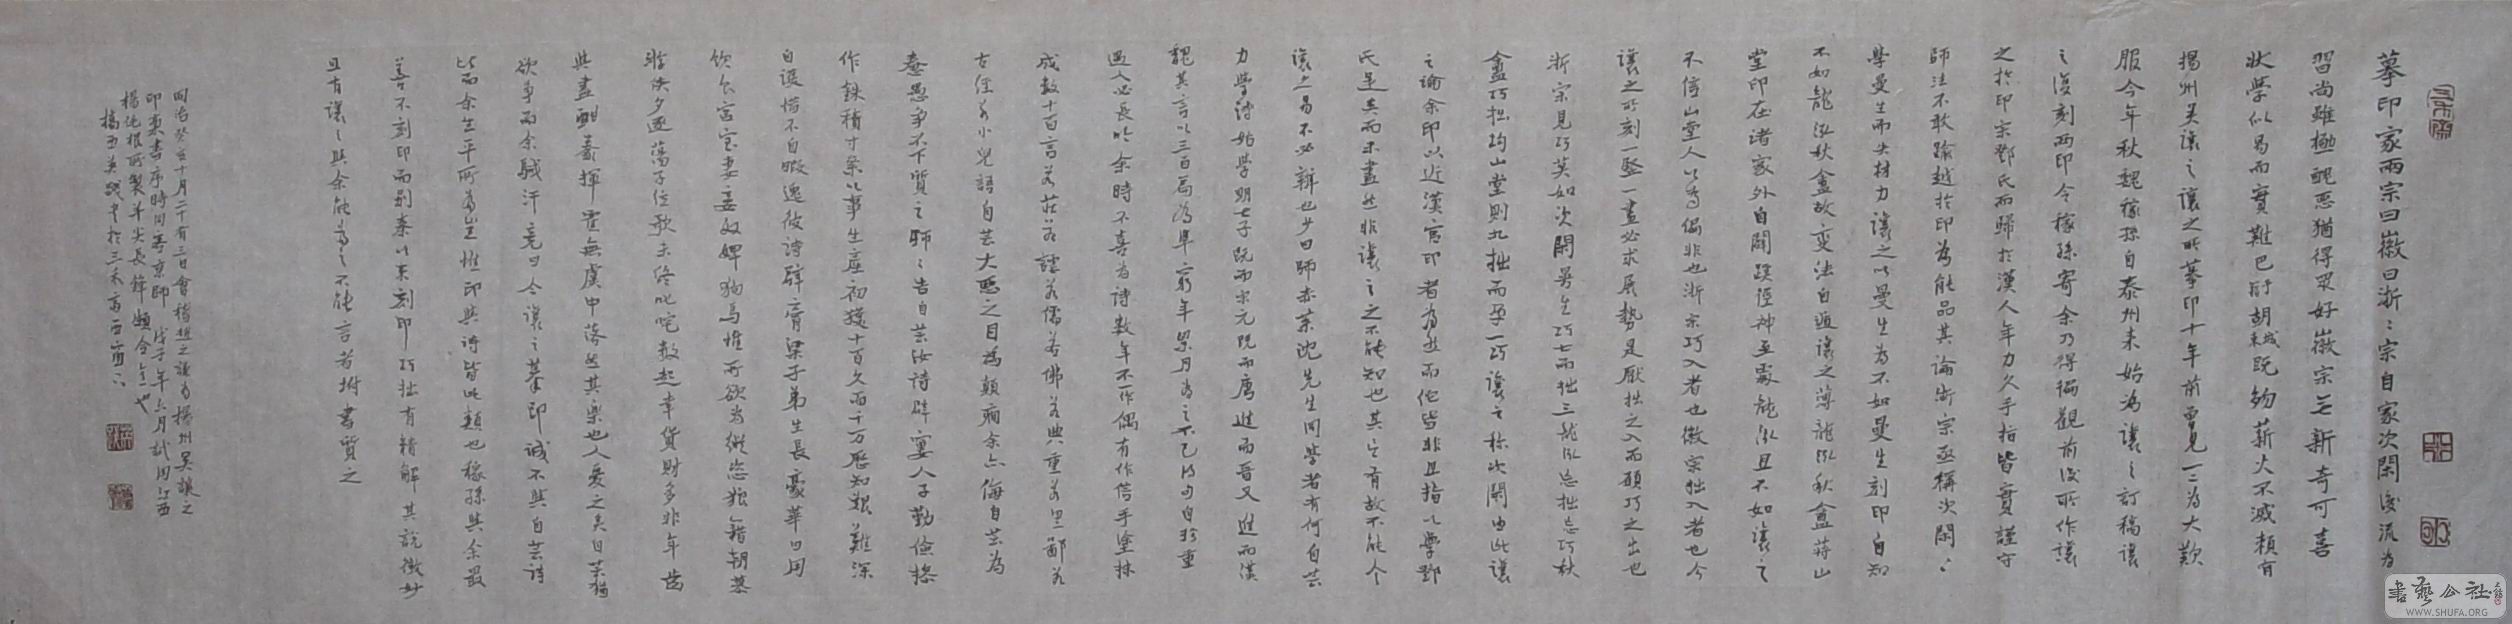 摹印家兩宗曰徽曰浙〻宗自家次閑後流為
習尚雖極醜惡猶得眾好徽宗無新奇可喜
狀學似易而實難巴胡既歿薪火不滅賴有
揚州吳讓之讓之所摹印十年前曾見一二為大歎
服今年秋魏稼孫自泰州來始為讓之訂稿讓
之復刻兩印令稼孫寄余乃得徧觀前後所作讓
之於印宗鄧氏而歸於漢人年力久手指皆實謹守
師法不敢踰越於印為能品其論浙宗亟稱次閑〻
學曼生而失材力讓之以曼生為不如曼生刻印自知
不如龍泓秋盦故變法自遁讓之薄龍泓秋盦蔣山
堂印在諸家外自闢蹊徑神至處龍泓且不如讓之
不信山堂人以為偏非也浙宗巧入者也徽宗拙入者也今
讓之所刻一豎一畫必求展勢是厭拙之入而願巧之出也
浙宗見巧莫如次閑曼生巧七而拙三龍泓忘拙忘巧秋
盦巧拙均山堂則九拙而孕一巧讓之稱次閑由此讓
之論余印以近漢官印者為然而它皆非且指以學鄧
氏是矣而未盡然非讓之之不能知也其言有故不能令
讓之易不必辨也少曰師赤荼沈先生同學者有何自芸
力學詩始學明七子既而宋元既而唐進而晉又進而漢
魏其言以三百篇為準窮年累月為之不已得句自珍重
過人必長吟余時不喜為詩數年不一作偶有作信手塗抹
成數十百言若莊若諧若儒若佛若典重若里鄙若
古經若小兒語自芸大惡之目為顛癇余亦侮自芸為
惷愚爭不下質之師〻告自芸汝詩譬寠人子勤儉操
作銖積寸絫以事生產初獲十百久而千万歷知艱難深
自謹惜不自暇逸彼詩譬膏粱子弟生長豪華日用
飲食宮室妻妾奴婢狗馬惟所欲為縱恣狼藉朝慕
游俠夕逐蕩子位歌未終叱咤數起幸貨財多非年齒
與盡酣嬉揮霍無虞中落然其樂也人憂之矣自芸猶
欲爭而余駴汗竟日今讓之摹印誠不與自芸詩
比而余生平所為豈惟印與詩皆此類也稼孫與余最
善不刻印而別秦以來刻印巧拙有精解其說微妙
且有讓之與余能為之不能言者附書質之
同治癸亥十月二十有三日會稽趙之謙為揚州吳讓之
印稾書序時同客京師 戊子年六月試用江西